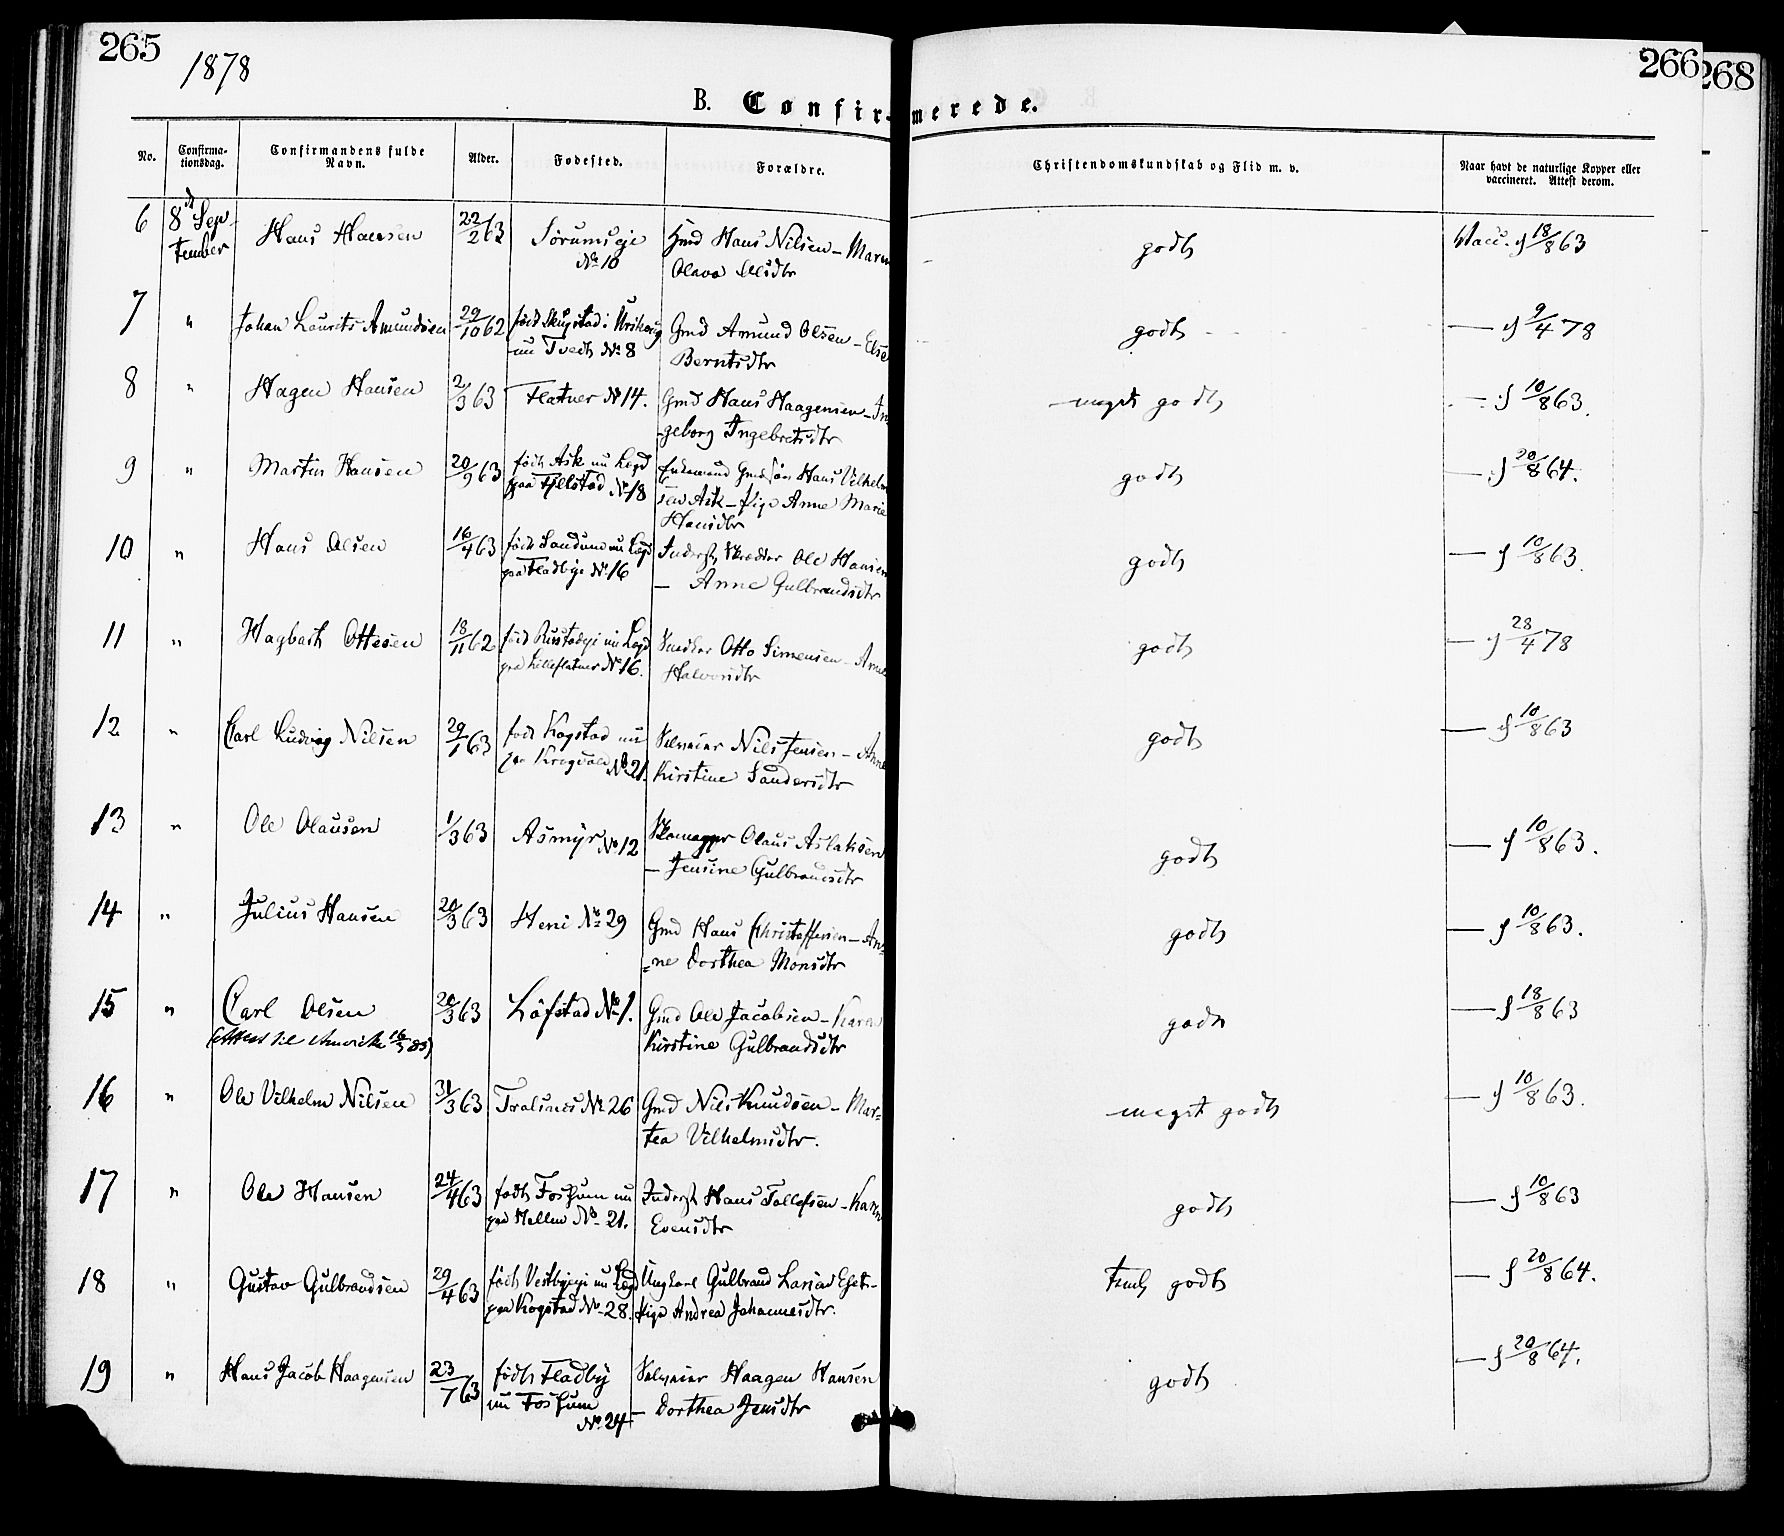 265
1878
266
268
B. Confirmerede.
No.
Confirma-
tionsdag.
Confirmandens fulde
Navn.
Alder.
Fødested.
Forældre.
Christendomskundskab og Flid m. v.
Naar havt de naturlige Kopper eller
vaccineret. Attest derom.
6 8de Sep- Hans Hansen 22/2 63 Sørumseje Gmd Hans Nilsen - Maren godt Vacc. 18/8 63
tember No 10 Olava Olsdtr
7 " Johan Laurits Amundsen 29/10 62 født i nu Tveth No 8 Gmd Amund Olsen - Else godt — 9/4 78
Berntsdtr
8 " Hagen Hansen 2/3 63 Flatner No 14. Gmd Hans Haagensen - In- meget godt — 10/8 63.
geborg Ingebretsdtr
9 " Martin Hansen 20/9 63 født Ask nu Lægd Enkemand Gmdsøn Hans Vilhelm godt — 20/8 64.
paa No 18 sen Ask - Pige Anne Marie
Hansdtr
10 " Hans Olsen 16/4 63 født Sandum nu Lægd Inderst, Skrædder Ole Hansen godt — 10/8 63.
paa Fladbye No 16 — Anne Gulbrandsdtr
11 " Hagbart Ottesen 18/11 62 født nu Lægd Snedker Otto Simensen - Anne godt — 28/4 78
paa Lilleflatner No 16. Halvorsdtr
12 " Carl Ludvig Nilsen 29/1 63 født Kogstad nu Selveier Nils Jensen - Anne godt — 10/8 63
paa No 21. Kirstine Sandersdtr
13 " Ole Olausen 1/3 63 Asmyr No 12 Skomager Olaus Aslaksen godt — 10/8 63.
— Jensine Gulbrandsdtr
14 " Julius Hansen 20/3 63 Heni No 29 Gmd Hans Christoffersen - An- godt — 10/8 63.
=ne Dorthea Monsdtr
15 " Carl Olsen 20/3 63 Løfstad No 1. Gmd Ole Jacobsen - Karen godt — 18/8 63
(Attest til Amerika 83) Kirstine Gulbrandsdtr
16 " Ole Vilhelm Nilsen 31/3 63 Tralsnes No 26 Gmd Nils Knudsen - Mar- meget godt — 10/8 63.
tea Vilhelmsdtr.
17 " Ole Hansen 24/4 63 født Fosshum nu Inderst Hans Tollefsen - Karen godt — 10/8 63
paa Hellen No 21. Evensdtr
18 " Gustav Gulbrandsen 29/4 63 født Vestbyeje nu Lægd Ungkarl Gulbrand Larsen - Temlg godt — 20/8 64.
paa Kogstad No 28. Pige Andrea Johannesdtr.
19 " Hans Jacob Haagensen 23/7 63 født Fladby Selveier Haagen Hansen godt — 20/8 64.
nu Fosshum — Dorthea Jensdtr
No 24